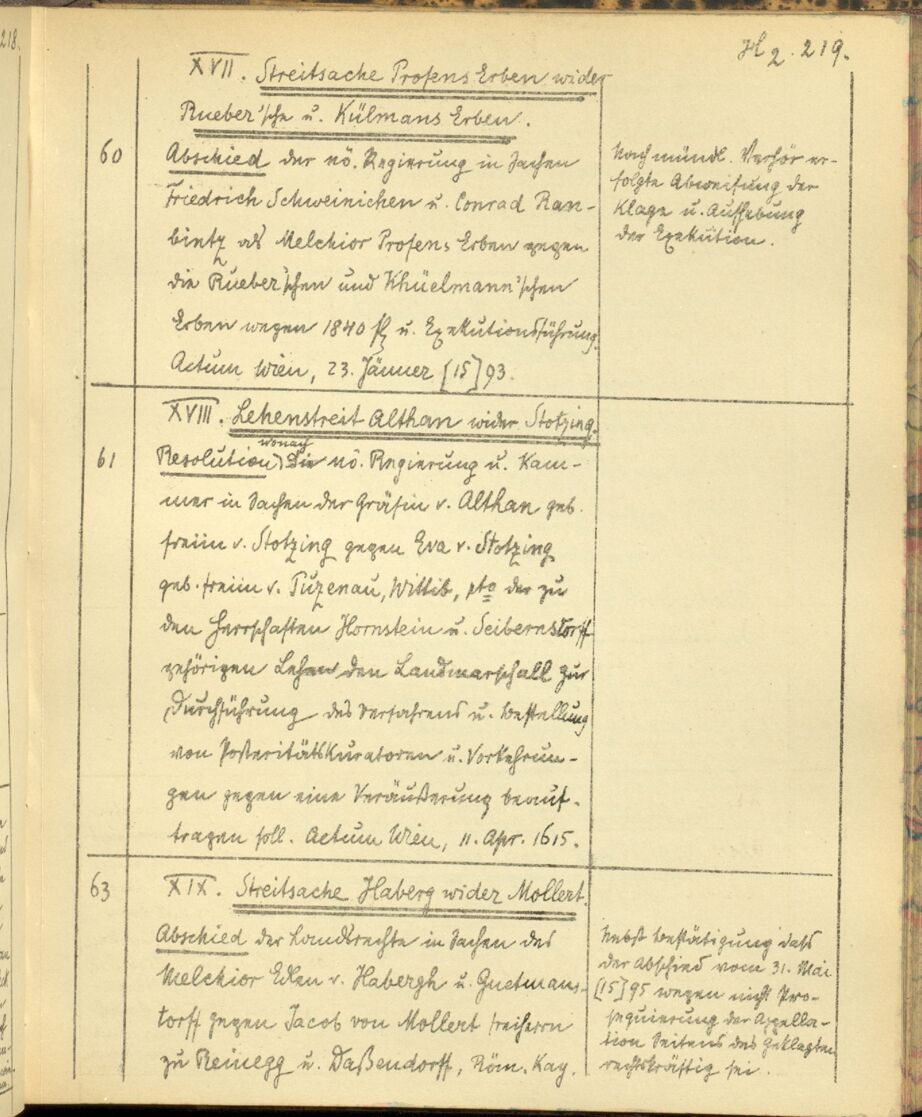 218.
H 2. 219.
XVII. Streitsache Profens Erben wider
Rueber'sche u. Külmans Erben.
60
Abschied der nö. Regierung in Sachen
Friedrich Schweinichen u. Conrad Ran-
bintz als Melchior Profens Erben gegen
die Rueber'schen und Khüelmann'schen
Erben wegen 1840 fl u. Exekutionsführung.
Actum Wien, 23. Jänner [15]93.
Nach mündl. Verhör er-
folgte Abweisung der
Klage u. Aufhebung
der Exekution.
XVIII. Lehenstreit Althan wider Stotzing.
61
Resolution, wonach die nö. Regierung u. Kam-
mer in Sachen der Gräfin v. Althan geb.
Freiin v. Stotzing gegen Eva v. Stotzing
geb. Freiin v. Puzenau, Wittib, pto der zu
den Herrschaften Hornstein u. Seibernstorff
gehörigen Lehen den Landmarschall zur
Durchführung des Verfahrens u. Bestellung
von Posteritätskuratoren u. Vorkehrun-
gen gegen eine Veräußerung beauf-
tragen soll. Actum Wien, 11. Apr. 1615.
63
XIX. Streitsache Haberg wider Mollert.
Abschied der Landrechte in Sachen des
Melchior Edlen v. Habergh u. Guetmans-
torff gegen Jacob von Mollert Freiherrn
zu Reinegg u. Daßendorff, Röm. Kay.
Nebst Bestätigung dass
der Abschied vom 31. Mai
[15]95 wegen nicht Pro-
sequierung der Appella-
tion Seitens des Geklagten
rechtskräftig sei.